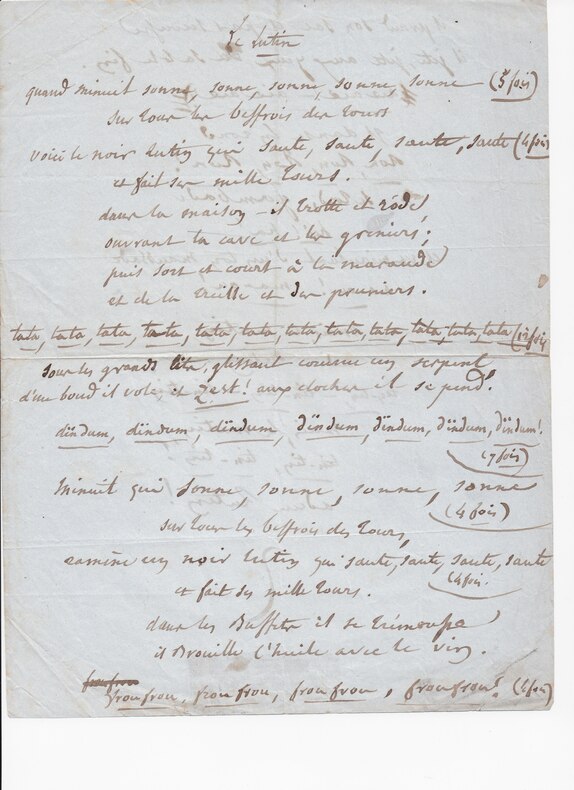 Le Lutin
quand minuit sonne, sonne, sonne, sonne, sonne (5 fois)
sur tous les beffrois des tours
voici le noir lutin qui saute, saute, saute, saute (4 fois
et fait ses mille tours.
dans la maison il trotte et rôde,
ouvrant la cave et les greniers;
puis sort et court à la maraude
et de la treille et des pruniers.
tata, tata, tata, tata, tata, tata, tata, tata, tata, tata, tata, tata (12 fois
sous les grands lits, glissant comme un serpent
d'un bond il vole et zest! aux cloches il se pend.
dindum, dindum, dindum, dindum, dindum, dindum, dindum!
(7 fois)
Minuit qui sonne, sonne, sonne, sonne
(4 fois)
sur tous les beffrois des tours,
ramène un noir lutin qui saute, saute, saute, saute
(4 fois.
et fait ses mille tours.
dans les Buffets il se trémousse
il Brouille l'huile avec le vin.
froufrou
froufrou, frou frou, froufrou, froufrou! (4 fois)